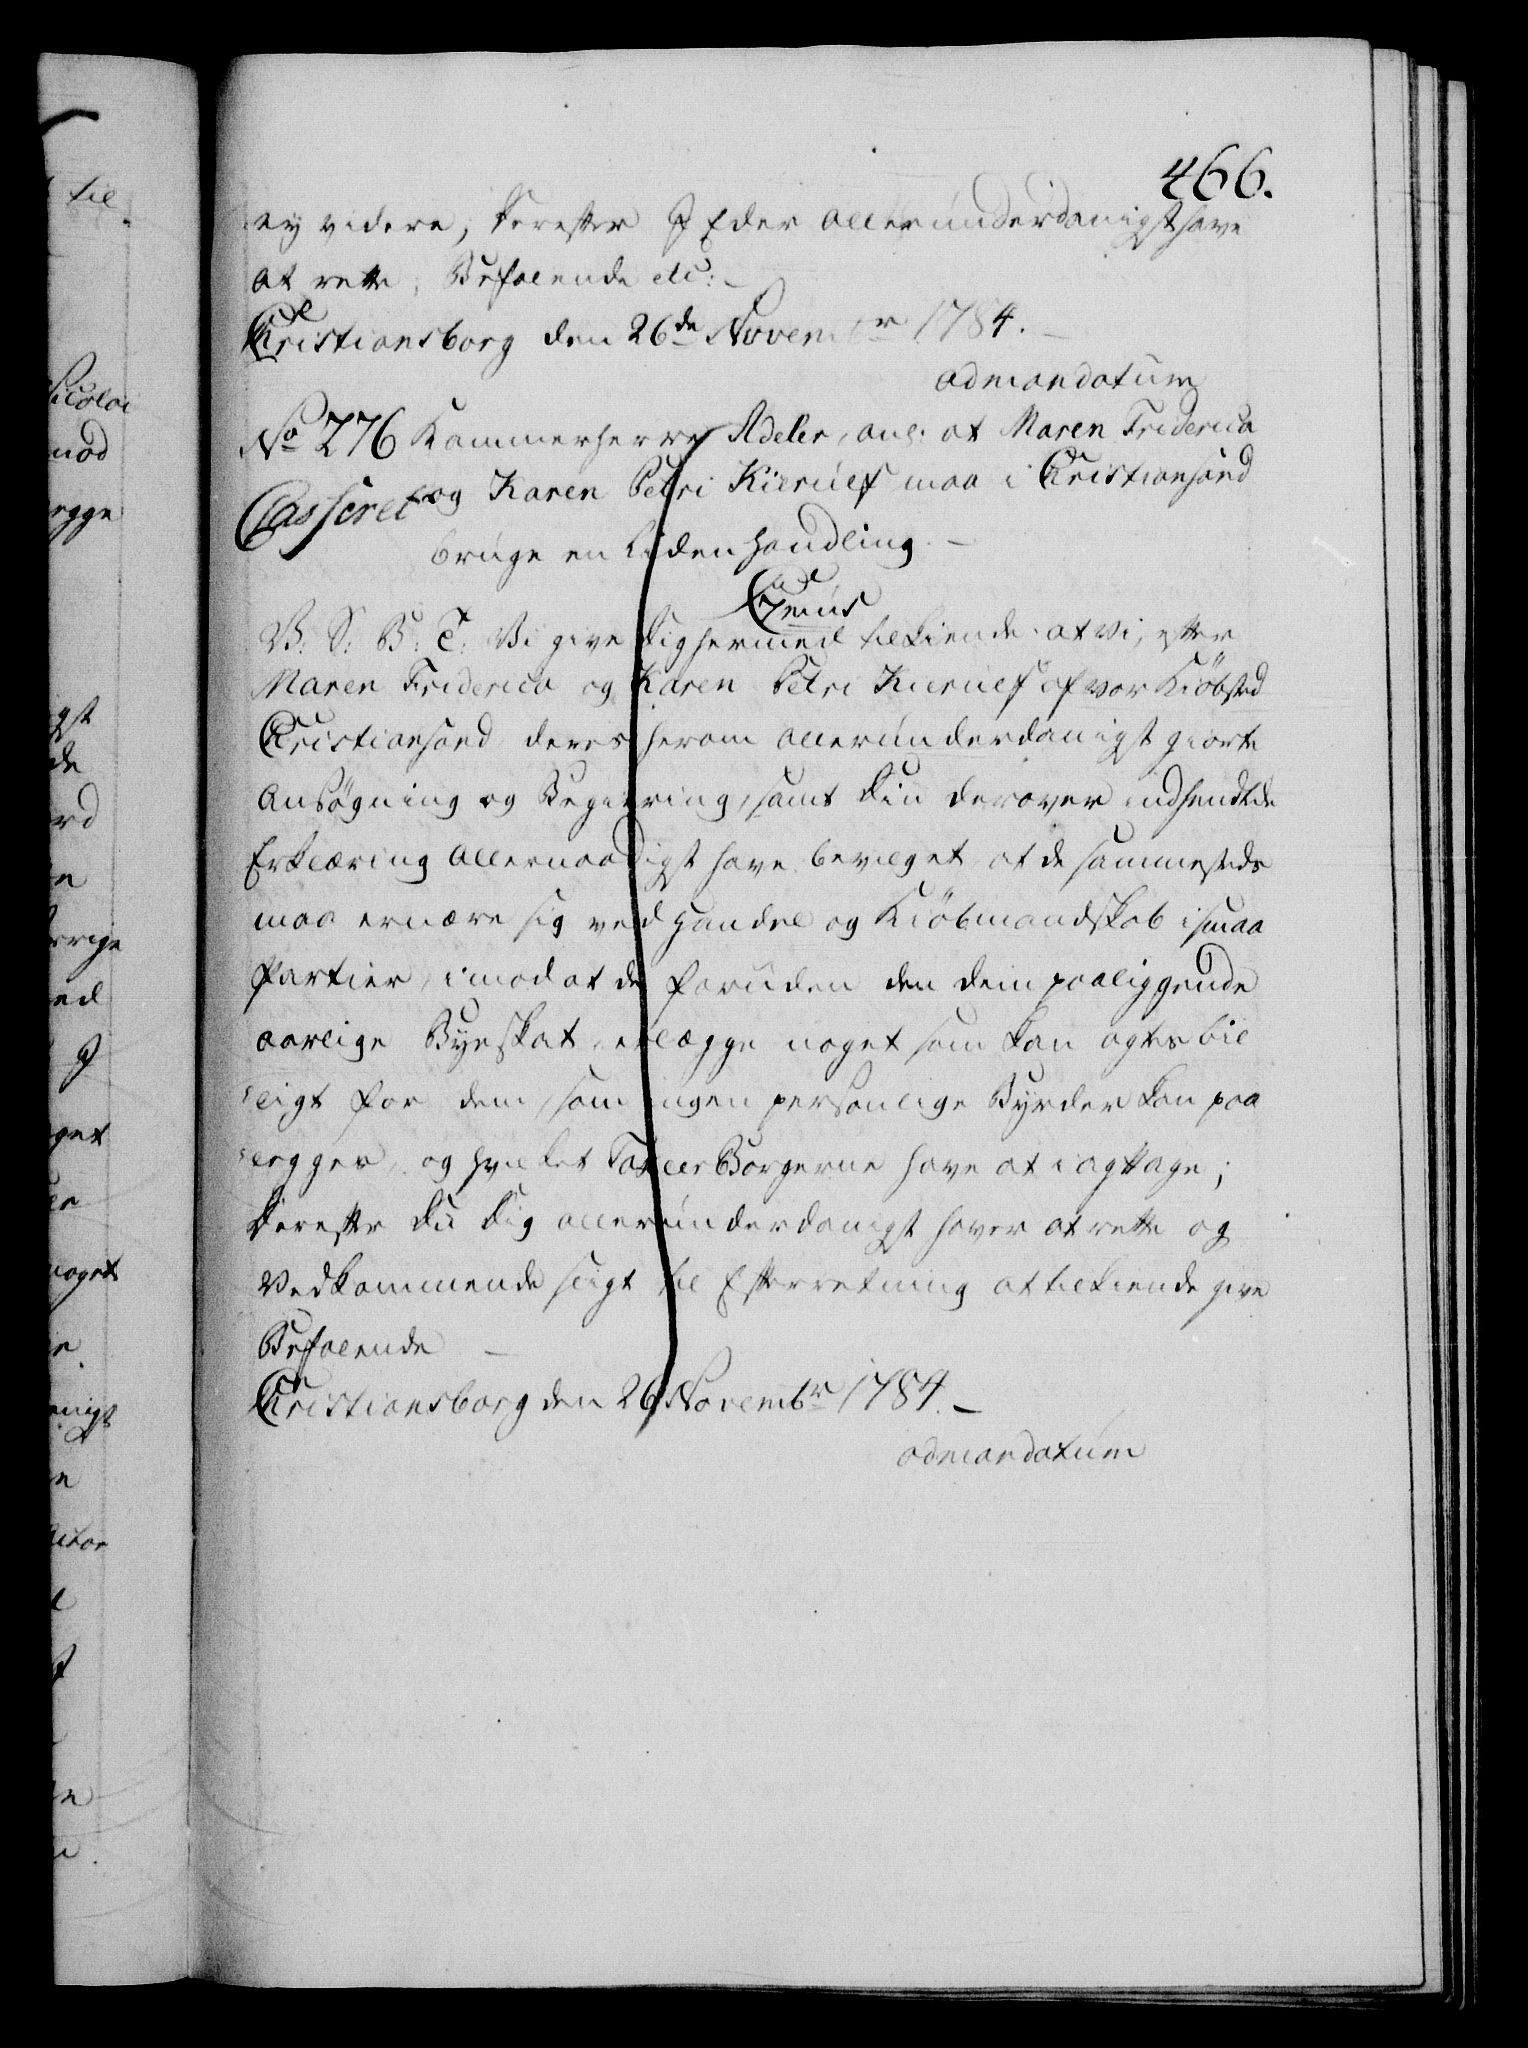 466.
ey videre, derefter I Eder allerunderdanigst have
at rette, Befalende etc:
Christiansborg den 26de Novembr 1784.
admandatum
No 276 Kammerherre Adeler, ang: at Maren Friderica
Casseret og Karen Petri Kierulf maa i Christiansand
bruge en liden Handling.
C 7mus
V: S: B: T: Vi give dig hermed tilkiende at vi, efter
Maren Friderica og Karen Petri Kierulf af vor Kiöbsted
Christiansand deres herom allerunderdanigst giorte
Ansøgning og Begiering, samt din derover indsendte
Erklæring Allernaadigst have bevilget at de sammesteds
maa ernære sig ved Handel og Kiöbmandskab i smaa
Partier, imod at de foruden den dem paaliggende
aarlige Byeskat, erlægge noget som kan agtes bil
ligt for dem, som ingen personlige Byrder kan paa
legges, og hvilket Taxeer Borgerne have at iagttage;
derefter du dig allerunderdanigst haver at rette og
Vedkommende sligt til Efterretning at tilkiende give
Befalende
Christiansborg den 26 Novembr 1784.
admandatum